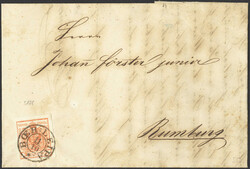 Herrn
Johann Förster junior
Rumburg
BÖH: LEIPA